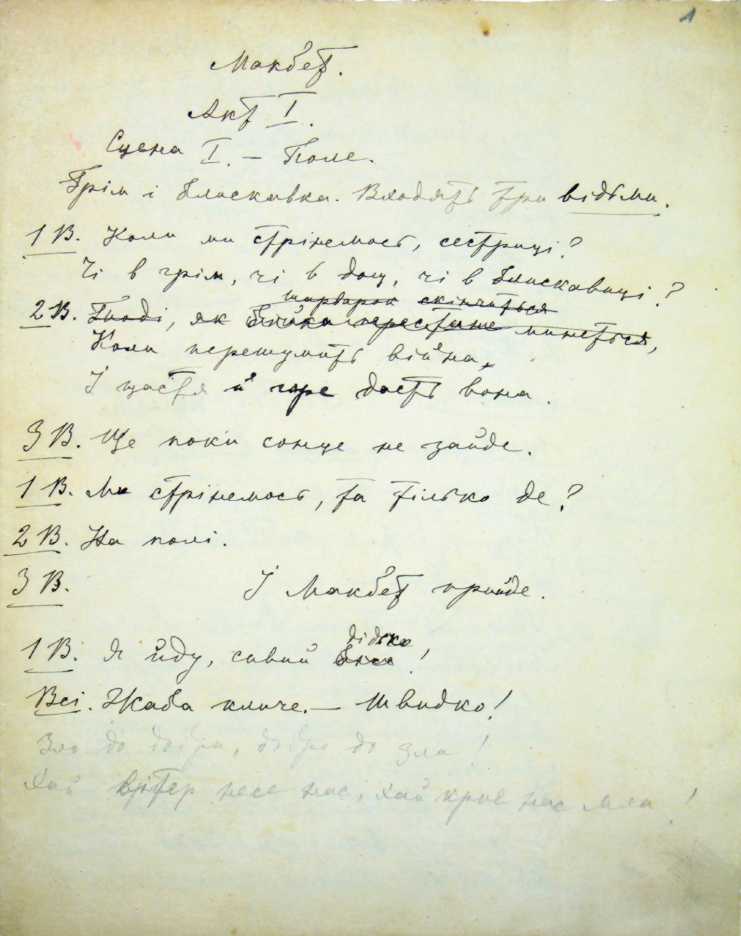 1
Макбет.
Акт I.
Сцена I. – Поле.
Грім і блискавка. Входять три відьми.
1 В. Коли ми стрінемось, сестриці?
Чі в грім, чі в дощ, чі в блискавиці?
шарварок скінчиться
2 В. Тноді, як бійка перестане минеться,
Коли перешумить війна,
І щастя й горе дасть вона.
3 В. Ще поки сонце не зайде.
1 В. Ми стрінемось, та тілько де?
2 В. На полі.
3 В. І Макбет прийде.
дідько
1 В. Я йду, сивий !
Всі. Жаба кличе. – Швидко!
Зло до добра, добро до зла!
Хай вітер несе нас, хай криє нас мла!